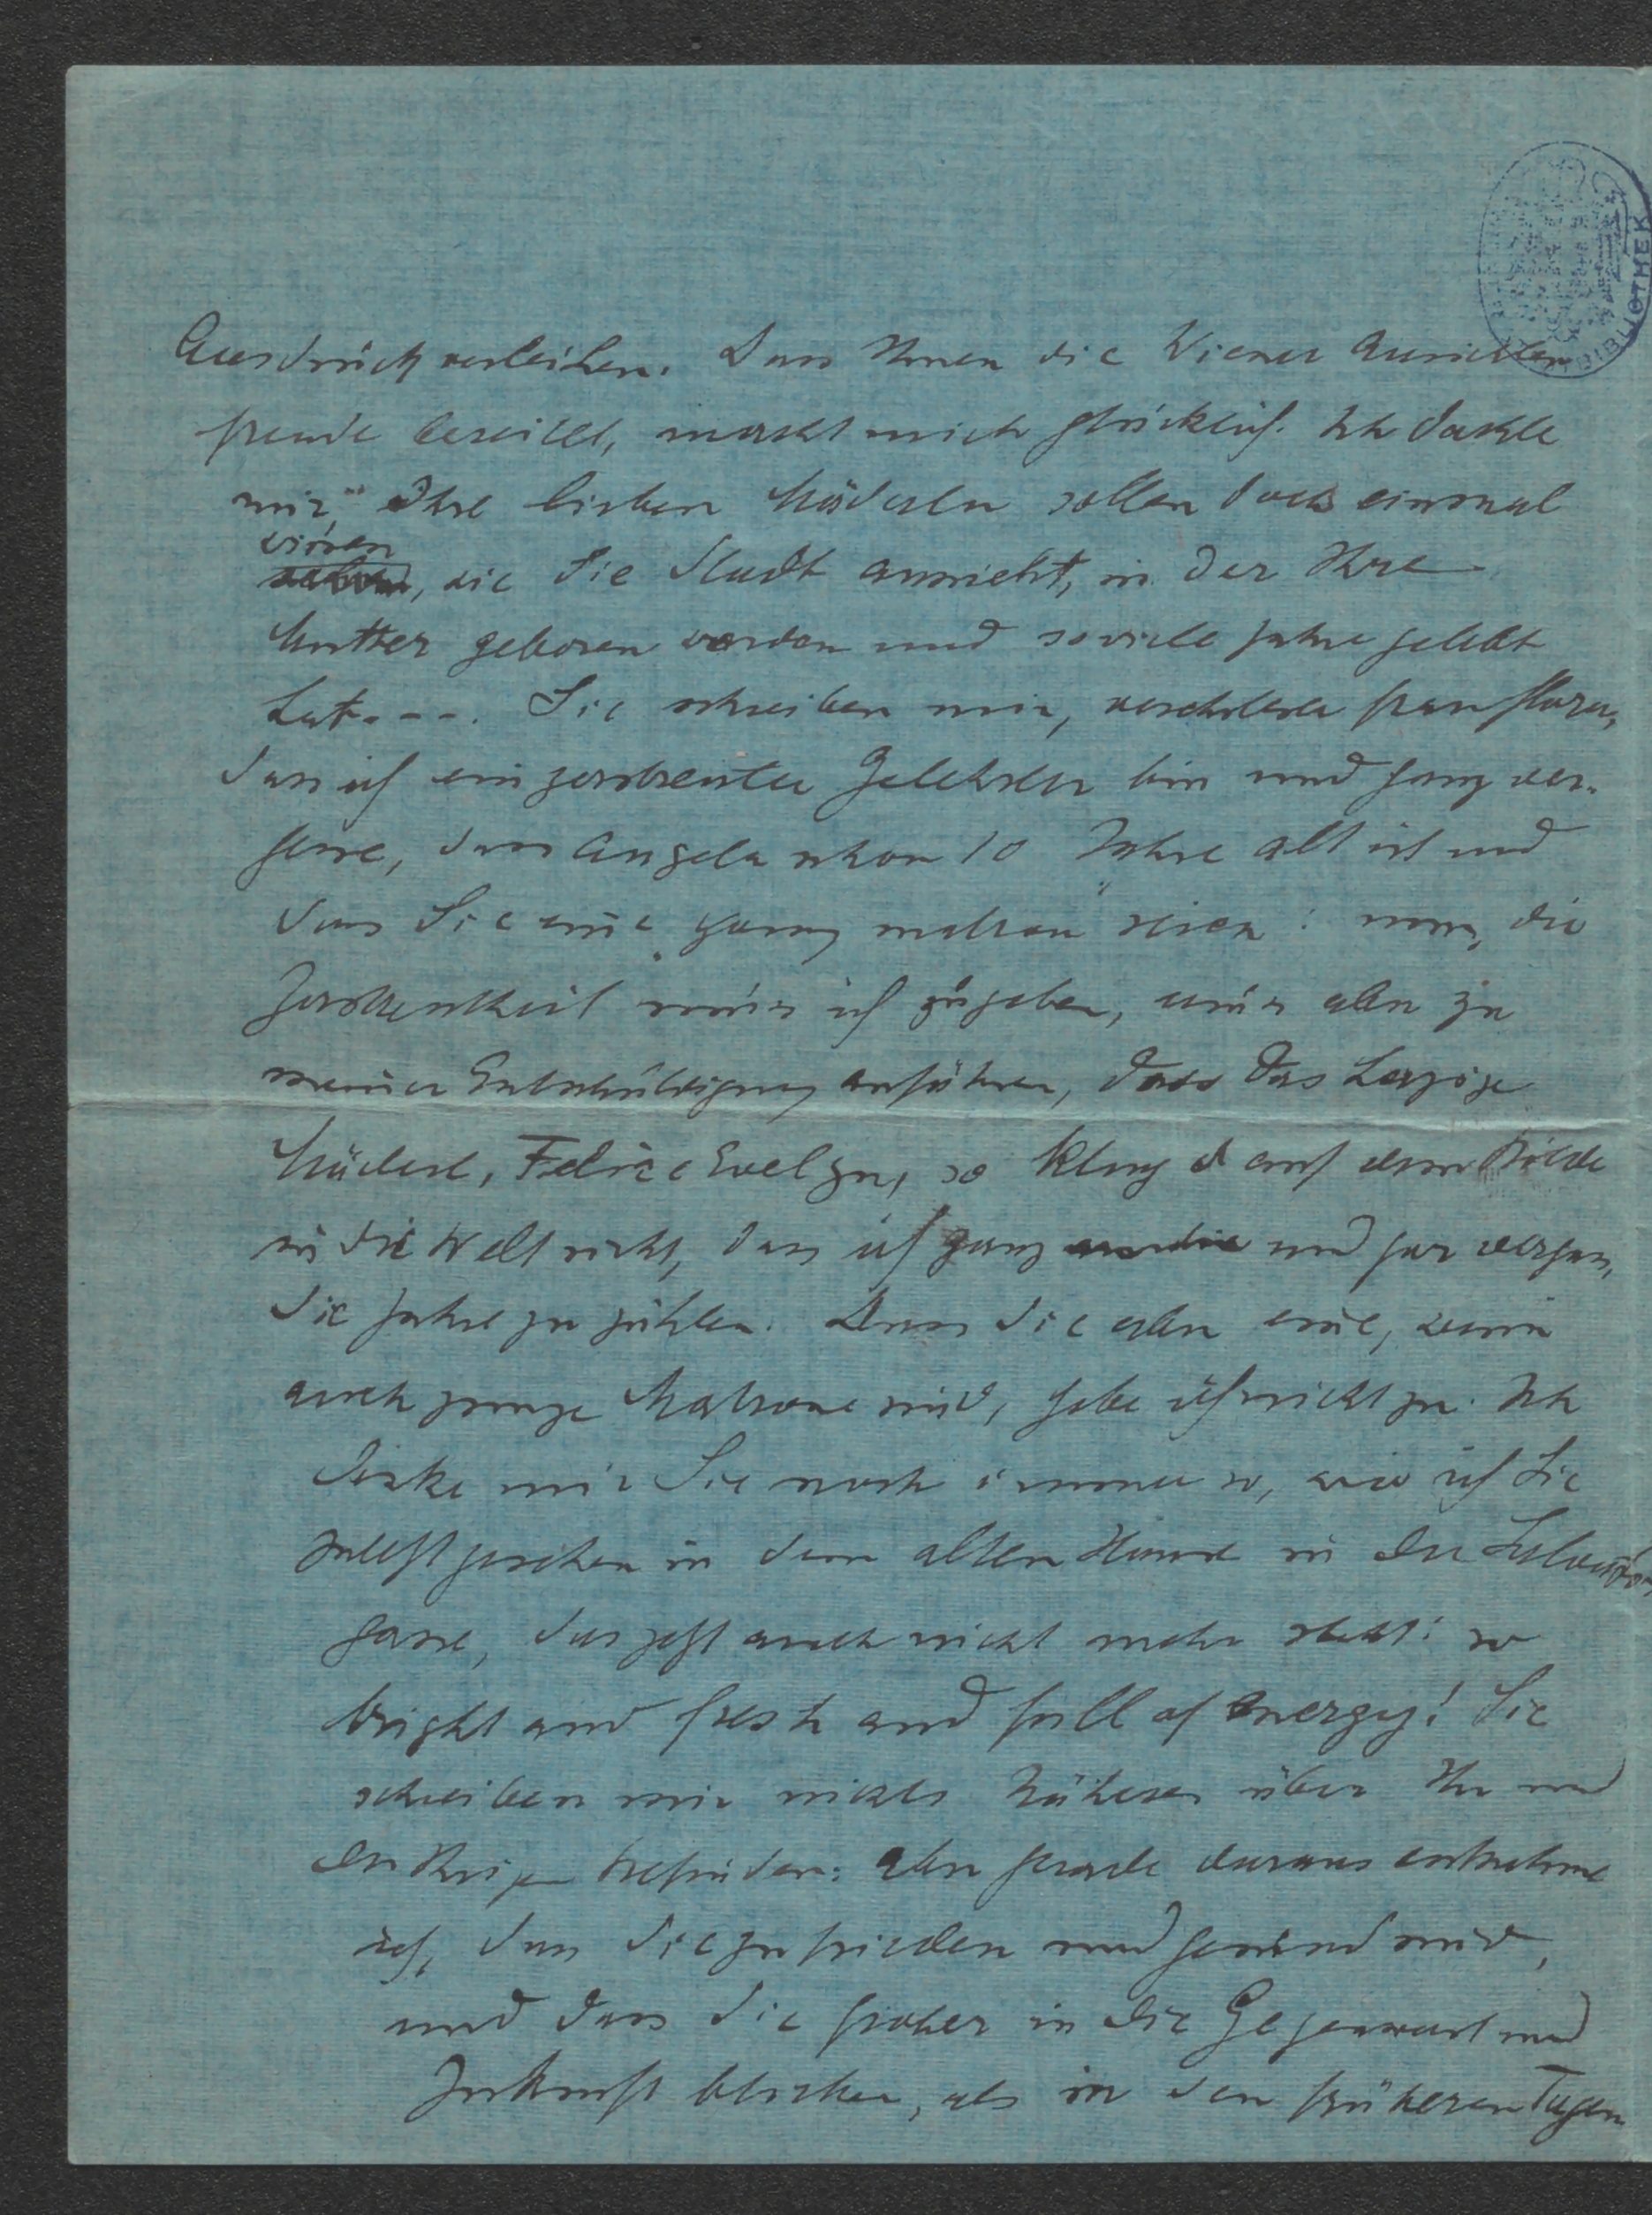 BIBLIOTHEK
Ausdruck verleihen. Dass Ihnen die Wiener Ansichten
Freude bereitet, macht mich glücklich. Ich dachte
mir, Ihre lieben Mäderln sollen doch einmal
wissen
, wie die Stadt aussieht, in der Ihre
Mutter geboren worden und soviele Jahre gelebt
hat. - - -. Sie schreiben mir, verehrteste Frau Flora,
dass ich ein zerstreuter Gelehrter bin und ganz ver-
gesse, dass Angela schon 10 Jahre alt ist und
dass Sie eine "young matron" seien: nun, die
Zerstreutheit muss ich zugeben, muss aber zu
meiner Entschuldigung anführen, dass das herzige
Mäderl, Felice Evelyn, so klug auf dem Bilde
in die Welt sieht, dass ich ganz und gar vergass,
die Jahre zu zählen. Dass Sie aber eine, wenn
auch junge Matrone sind, gebe ich nicht zu. Ich
denke mir Sie noch immer so, wie ich Sie
zuletzt gesehen in dem alten Hause in der
gasse, das jetzt auch nicht mehr steht: so
bright and fresh and full of energy! Sie
schreiben mir nichts Näheres über Ihr und
der Ihrigen Befinden: aber gerade daraus entnehme
ich, dass Sie zufrieden und gesund sind,
und dass Sie froher in die Gegenwart und
Zukunft blicken, als in den früheren Tagen